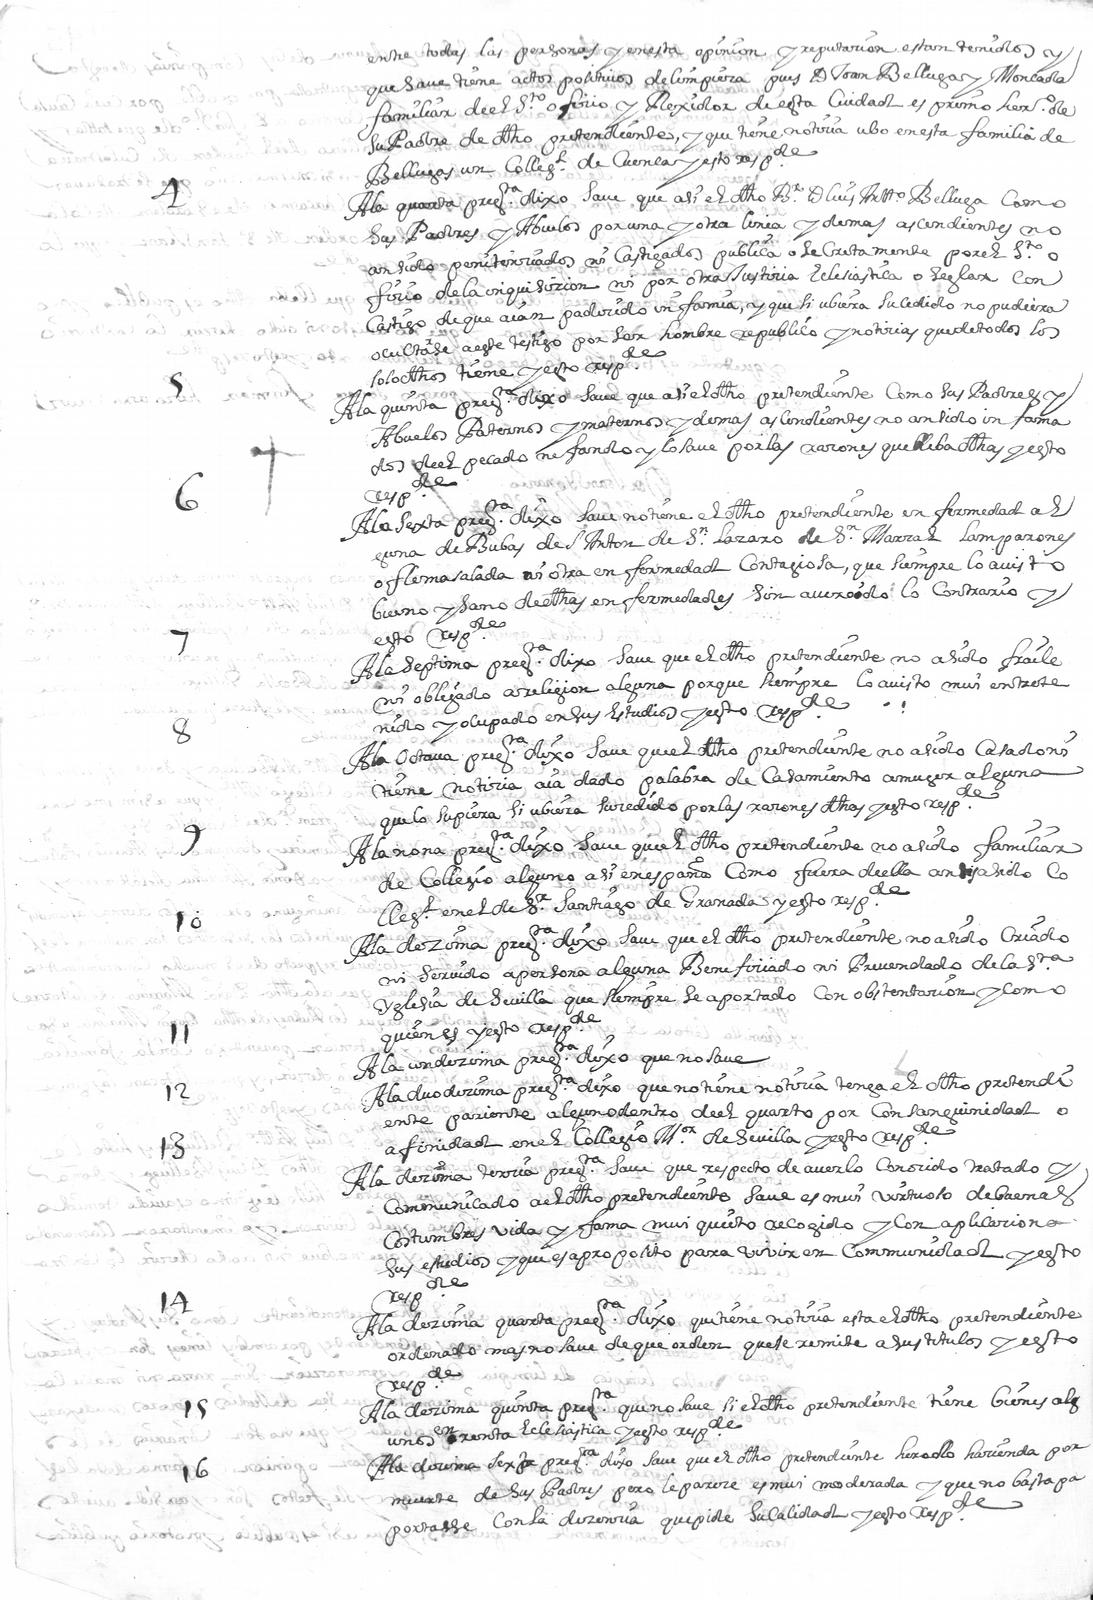 entre todas las personas y enesta opinion y reputazion estan tenidos y
que save tiene actos positivos de limpieza pues D Joan Belluga y Moncada
familiar deel S.to ofizio y Rexidor de esta Ciudad es primo her.o de
su Padre de dho pretendiente, y que tiene notizia ubo enesta familia de
Bellugas un Colleg.l de Cuenca y esto resp.de
4
A la quarta preg.ta dixo save que asi el dho B.r D Luis Antt.o Belluga Como
sus Padres y Abuelos por una y otra linia y demas ascendientes no
an sido penitenziados ni Castigados publica o secretamente por el S.to o
fizio de la inquisizion ni por otra Justizia Eclesiastica o seglar con
Castigo de que aian padezido infamia, y que si ubiera suzedido no pudiera
ocultarse aeste testigo por ser hombre republico y notizias que de todos los
solo dhos tiene y esto resp.de
5
A la quinta preg.ta dixo save que asi el dho pretendiente Como sus Padres y
Abuelos Paternos y maternos y demas ascendientes no an sido infama
dos deel pecado nefando y lo save por las razones que lleba dhas y esto
resp.de
6
A la sexta preg.ta dixo save no tiene el dho pretendiente enfermedad al
guna de Bubas de S Anton de S.n Lazaro de S.n Marzal Lamparones
o flema salada ni otra enfermedad Contagiosa, que siempre lo avisto
bueno y sano de dhas enfermedades sin aver oido lo Contrario y
esto resp.de
7
A la septima preg.ta dixo save que el dho pretendiente no asido fraile
ni obligado a religion alguna porque siempre lo avisto mui entrete
nido y ocupado en sus Estudios y esto resp.de
8
A la Octava preg.ta dixo save que el dho pretendiente no asido Casado ni
tiene notizia aia dado palabra de Casamiento a muger alguna
que lo supiera si ubiera suzedido por las razones dhas y esto resp.de
9
A la nona preg.ta dixo save que el dho pretendiente no asido familiar
de Collegio alguno asi en españa Como fuera de ella asido Co
lleg.l en el de S.r Santiago de Granada y esto resp.de
10
A la dezima preg.ta dixo save que el dho pretendiente no asido Criado
ni servido a persona alguna Benefiziado ni Prevendado de la S.ta
Yglesia de Sevilla que siempre se aportado Con obstentazion y como
quien es y esto resp.de
11
A la undezima preg.ta dixo que no save
12
A la duodezima preg.ta dixo que no tiene notizia tenga el dho pretendi
ente pariente alguno dentro deel quarto por Consanguinidad o
afinidad en el Collegio M.or de Sevilla y esto resp.de
13
A la dezima terzia preg.ta save que respecto de averlo Conozido tratado y
Comunicado a el dho pretendiente save es mui virtuoso de buenas
Costumbres vida y fama mui quieto recogido y con aplicazion a
sus estudios y que es a proposito para vivir en Communidad y esto
resp.de
14
A la dezima quarta preg.ta dixo qui tiene notizia esta el dho pretendiente
ordenado mas no save de que orden que se remite a sus titulos y esto
resp.de
15
A la dezima quinta preg.ta que no save si el dho pretendiente tiene bienes alg
unos en renta Eclesiastica y esto resp.de
16
A la dezima sexta preg.ta dixo save que el dho pretendiente heredo hazienda por
muerte de sus Padres pero le pareze es mui moderada y que no basta pa
portarse Con la dezenzia que pide su Calidad y esto resp.de